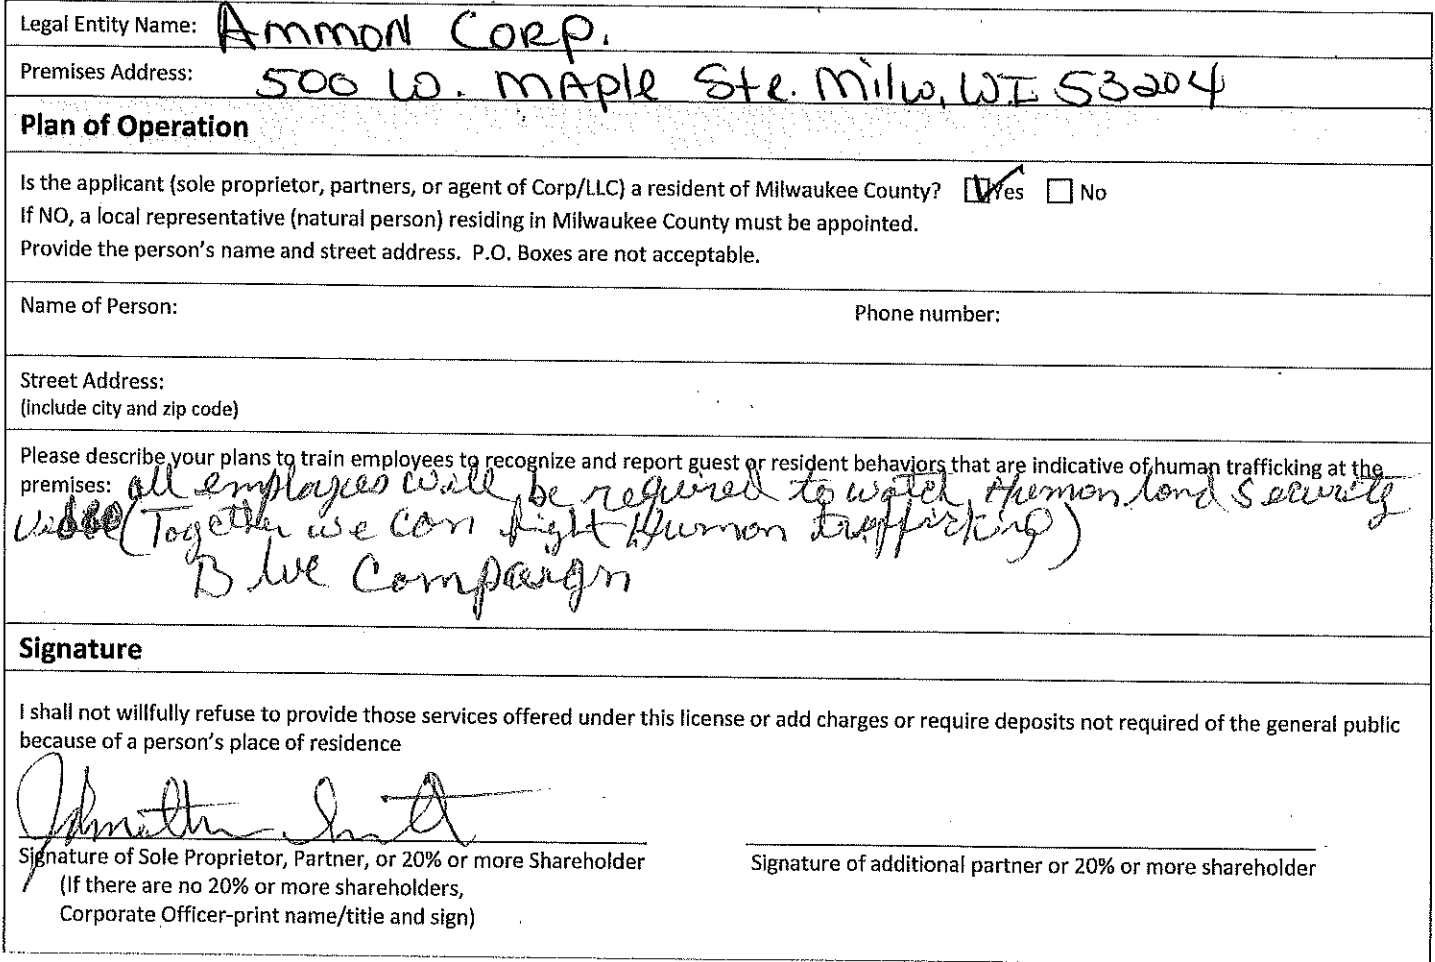 Legal Entity Name: Ammon Corp.
Premises Address: 500 W. Maple Ste. Milw, WI 53204
Plan of Operation
Is the applicant (sole proprietor, partners, or agent of Corp/LLC) a resident of Milwaukee County? ☑ Yes ☐ No
If NO, a local representative (natural person) residing in Milwaukee County must be appointed.
Provide the person's name and street address. P.O. Boxes are not acceptable.
Name of Person: Phone number:
Street Address:
(include city and zip code)
Please describe your plans to train employees to recognize and report guest or resident behaviors that are indicative of human trafficking at the
premises: all employees will be required to watch Humonlond Security
(Together we can fight Human trafficking)
Blue Compaign
Signature
I shall not willfully refuse to provide those services offered under this license or add charges or require deposits not required of the general public
because of a person's place of residence
Signature of Sole Proprietor, Partner, or 20% or more Shareholder Signature of additional partner or 20% or more shareholder
(If there are no 20% or more shareholders,
Corporate Officer-print name/title and sign)